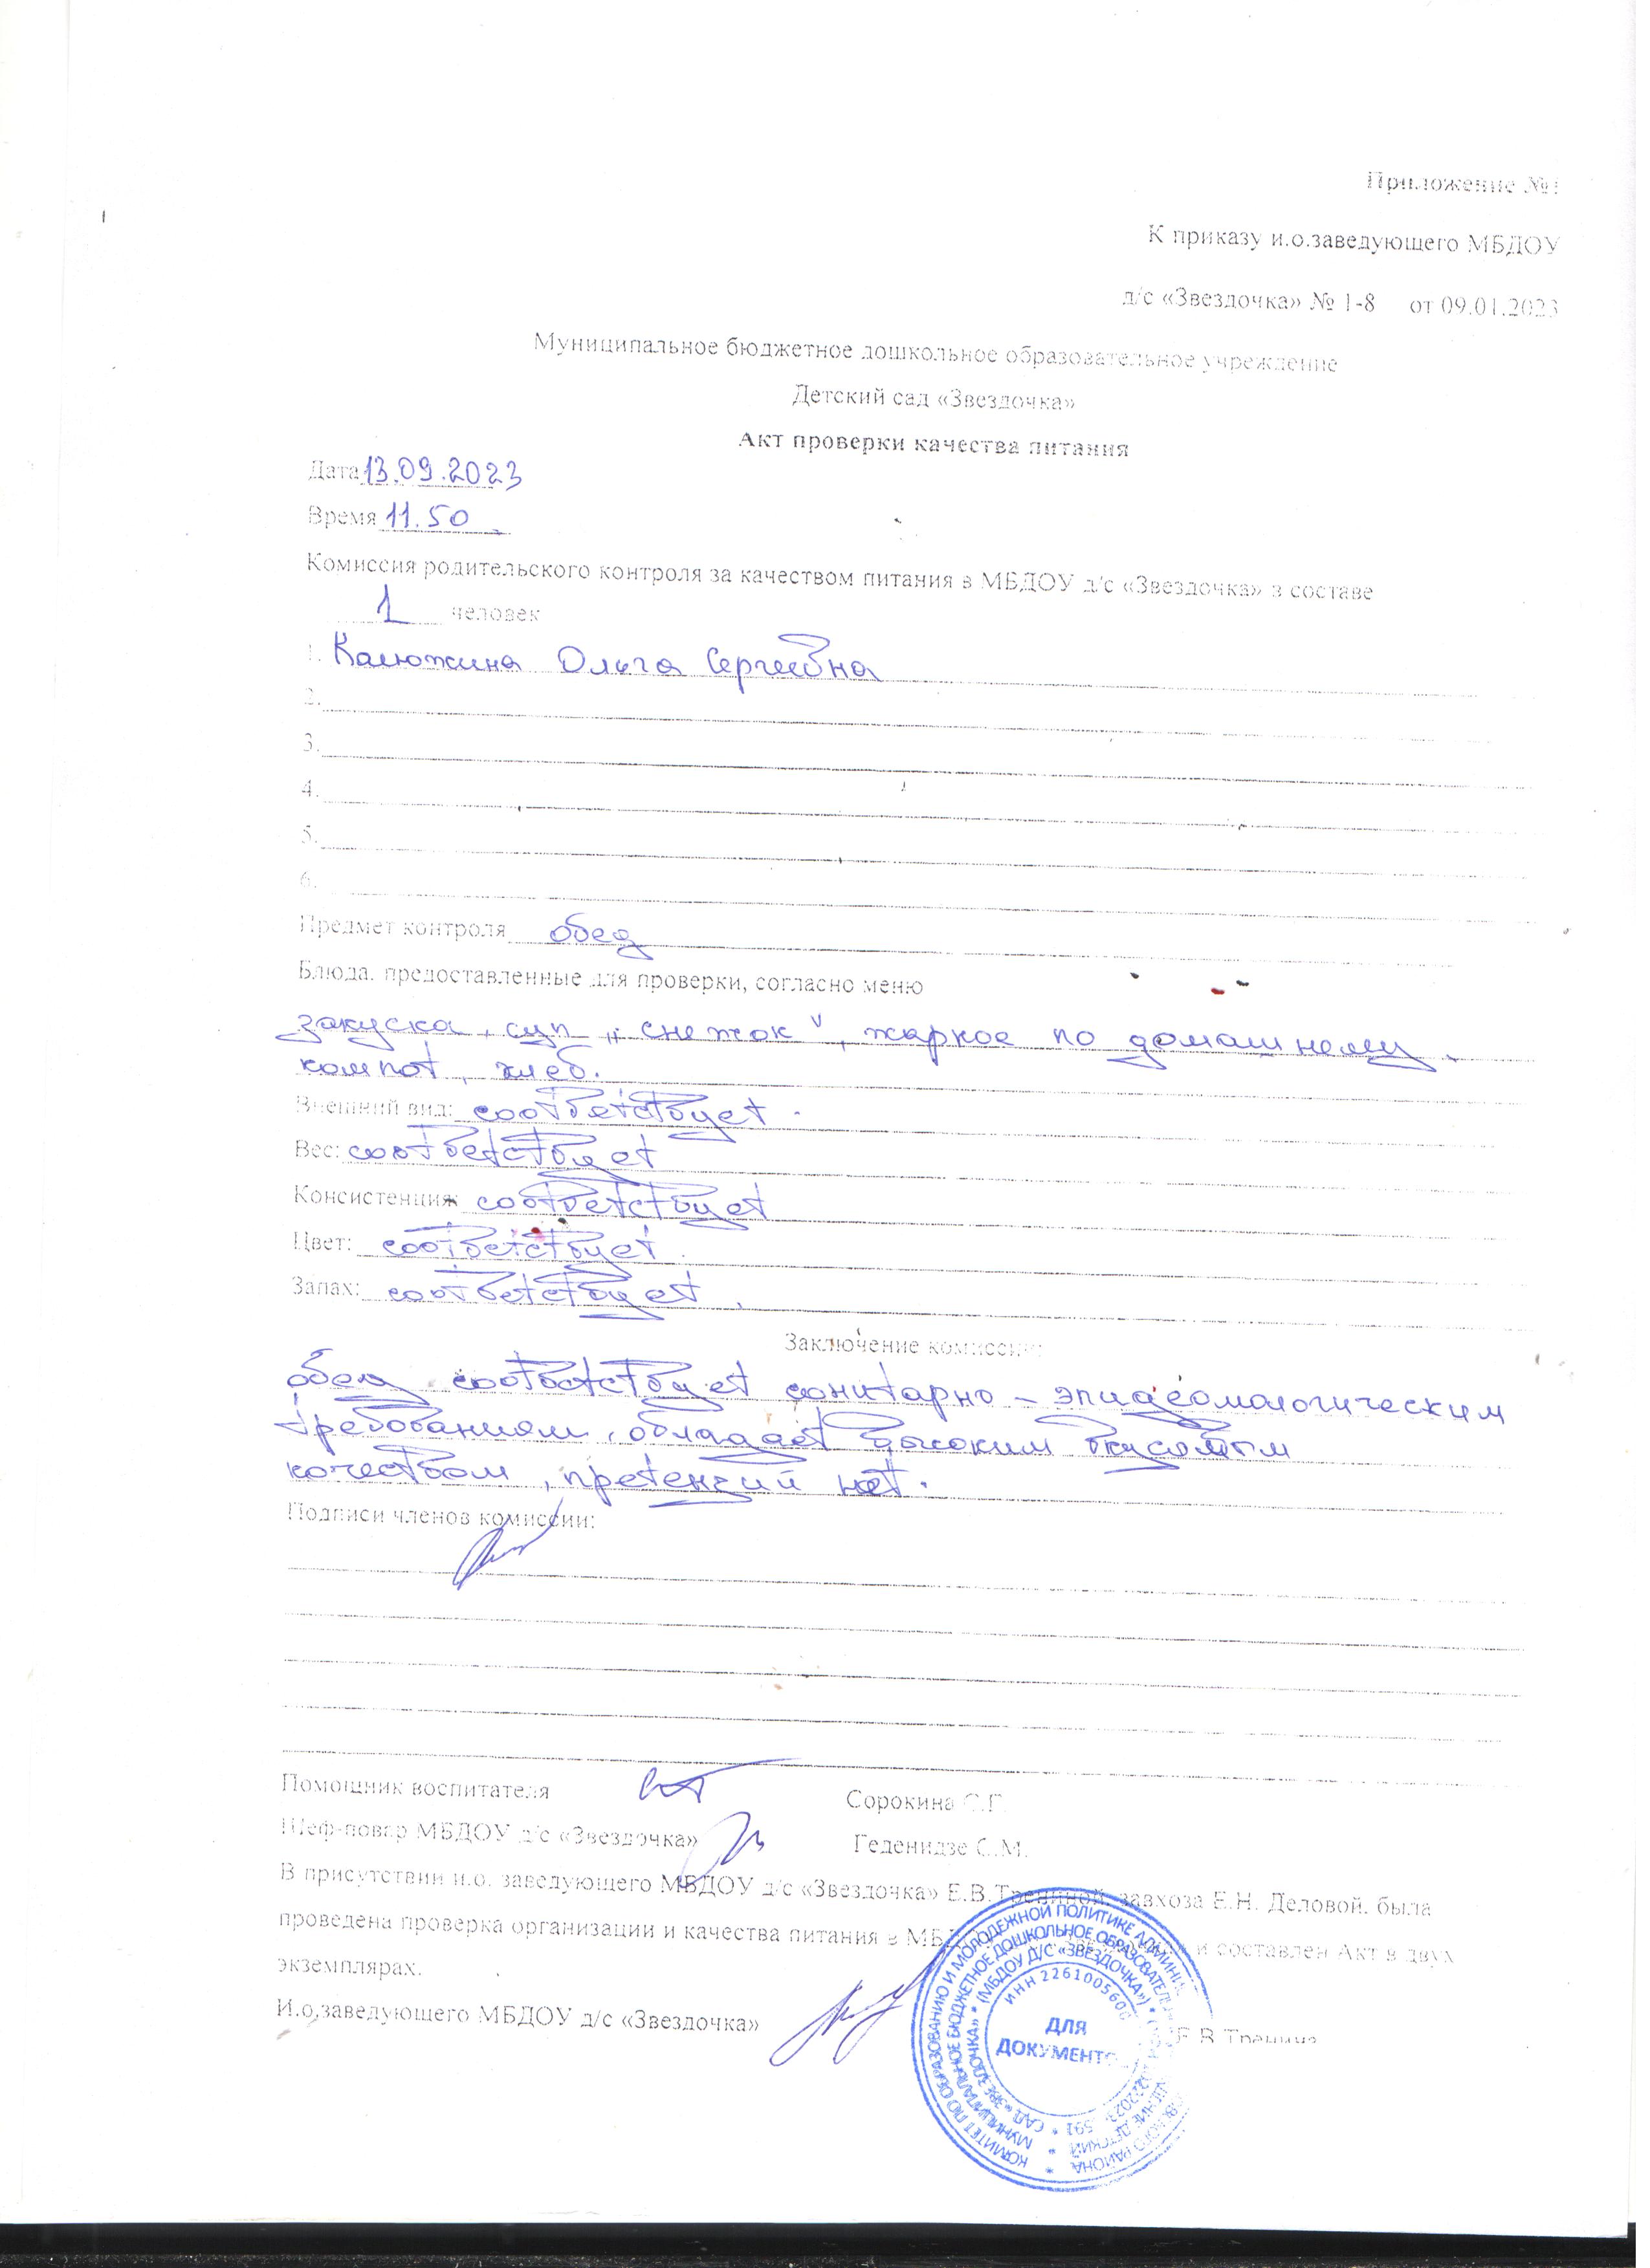 Приложение №1
К приказу и.о.заведующего МБДОУ
д/с «Звездочка» № 1-8 от 09.01.2023
Муниципальное бюджетное дошкольное образовательное учреждение
Детский сад «Звездочка»
Акт проверки качества питания
Дата 13.09.2023
Время 11.50
Комиссия родительского контроля за качеством питания в МБДОУ д/с «Звездочка» в составе
1 человек
1. Калюжина Ольга Сергеевна
2.
3.
4.
5.
6.
Предмет контроля обед
Блюда, предоставленные для проверки, согласно меню
закуска, суп „снежок", жаркое по домашнему,
компот, хлеб.
Внешний вид: соответствует.
Вес: соответствует
Консистенция: соответствует
Цвет: соответствует.
Запах: соответствует.
Заключение комиссии:
обед соответствует санитарно-эпидеомологическим
требованиям, обладает высоким вкусовым
качеством, претензий нет.
Подписи членов комиссии:
Помощник воспитателя Сорокина С.Г.
Шеф-повар МБДОУ д/с «Звездочка» Геденидзе С.М.
В присутствии и.о. заведующего МБДОУ д/с «Звездочка» Е.В.Трениной, завхоза Е.Н. Деловой, была
проведена проверка организации и качества питания в МБД и составлен Акт в двух
экземплярах.
И.о.заведующего МБДОУ д/с «Звездочка» Е.В.Тренина
КОМИТЕТ ПО ОБРАЗОВАНИЮ И МОЛОДЕЖНОЙ ПОЛИТИКЕ АДМИНИ РАЙОНА
МУНИЦИПАЛЬНОЕ БЮДЖЕТНОЕ ДОШКОЛЬНОЕ ОБРАЗОВАТЕЛЬ ДЕТСКИЙ
САД «ЗВЕЗДОЧКА» * (МБДОУ Д/С «ЗВЕЗДОЧКА») *
ИНН 226100560
ДЛЯ
ДОКУМЕНТО